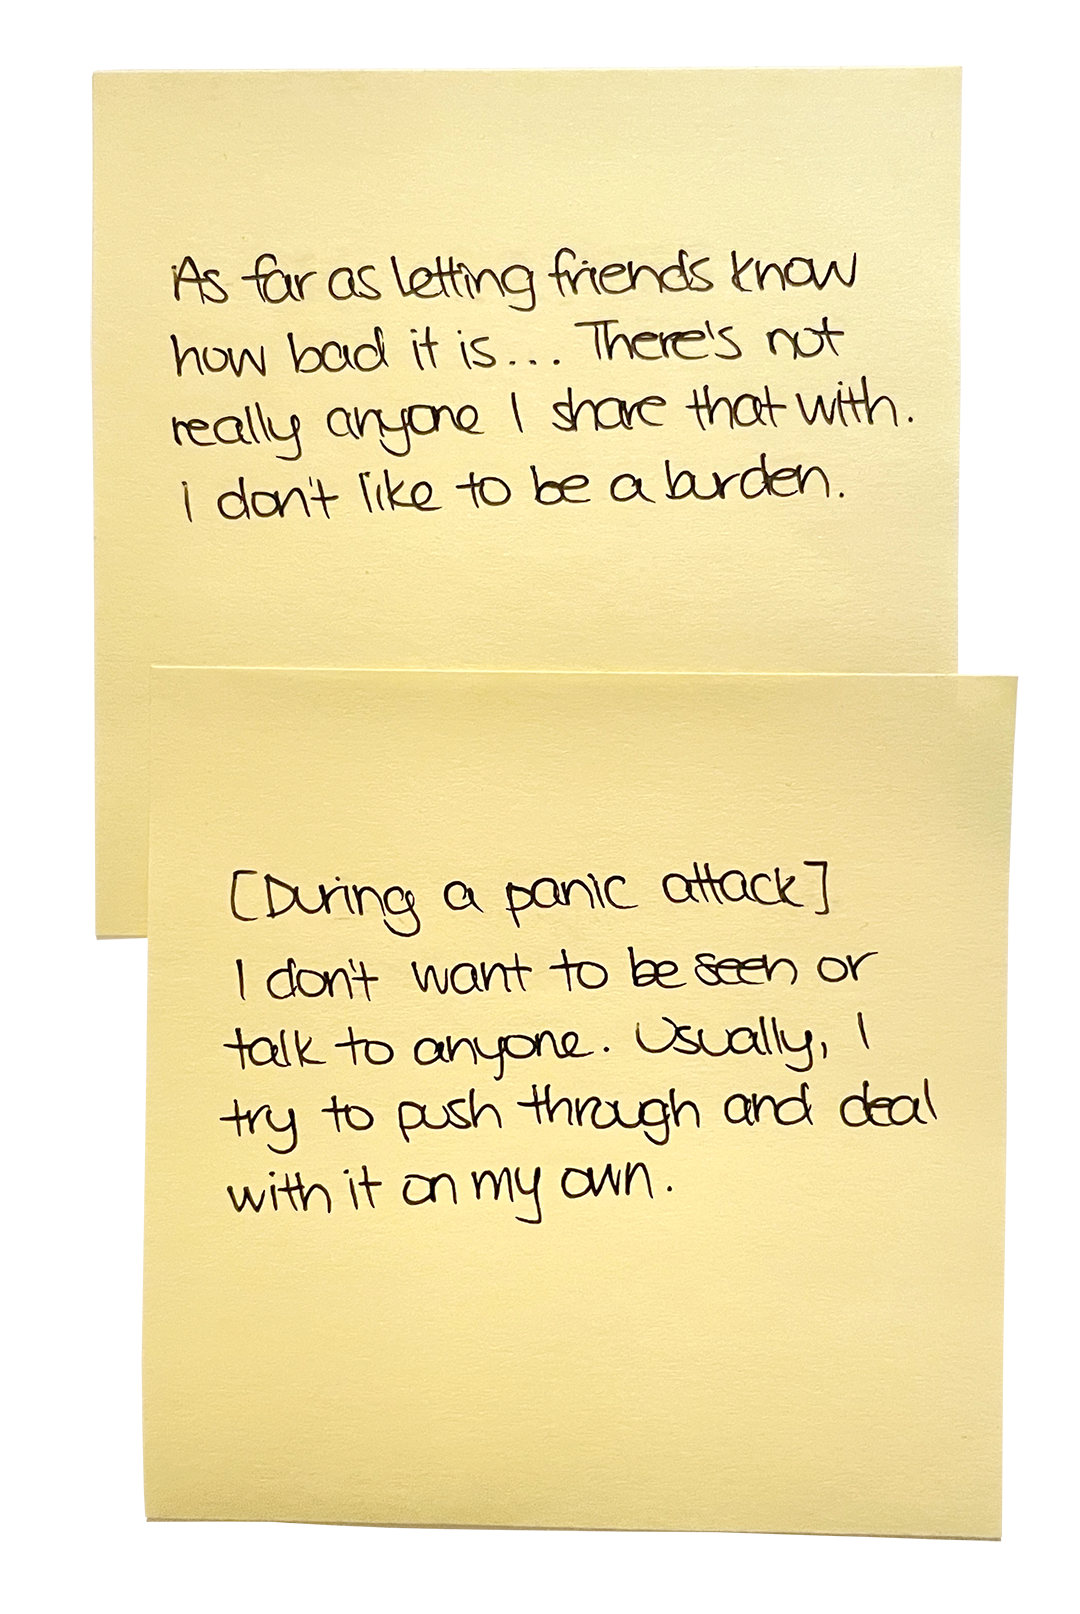 As far as letting friends know
how bad it is... There's not
really anyone I share that with.
I don't like to be a burden.
[During a panic attack]
I don't want to be seen or
talk to anyone. Usually, I
try to push through and deal
with it on my own.